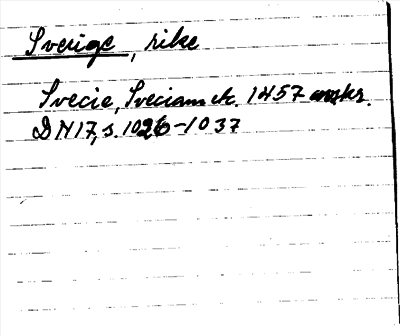 Sverige, rike
Svecie, Sveciam etc. 1457 omkr.
DN17, s. 1026-1037